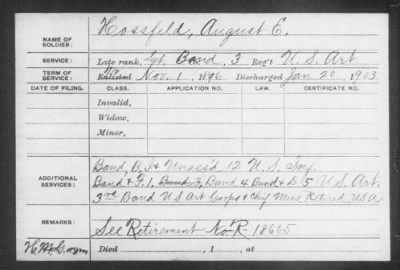 NAME OF SOLDIER: Hossfeld, August E.
SERVICE: Late rank, Sgt. Band, 3 Reg't U. S. Art.
TERM OF SERVICE: Enlisted Nov. 1, 1896, Discharged Jan 20, 1903
DATE OF FILING. CLASS. APPLICATION NO. LAW. CERTIFICATE NO.
Invalid,
Widow,
Minor,
Band, B, I & Unass'd 12 U. S. Inf.
ADDITIONAL SERVICES: Band & F. 1, Band 7, Band 4 Band & D. 5 U. S. Art.
3rd Band U S Art Corps & Chief Mus. Retired USA
REMARKS: See Retirement No R- 18665
Died , , at